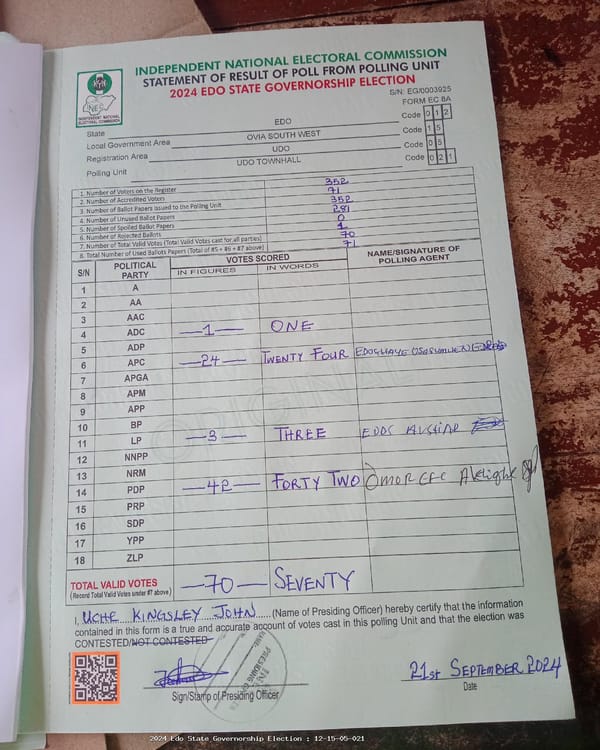 INDEPENDENT NATIONAL ELECTORAL COMMISSION
STATEMENT OF RESULT OF POLL FROM POLLING UNIT
2024 EDO STATE GOVERNORSHIP ELECTION
INEC
INDEPENDENT NATIONAL ELECTORAL COMMISSION
S/N: EG/0003925
FORM EC 8A
State EDO Code 012
Local Government Area OVIA SOUTH WEST Code 15
Registration Area UDO Code 05
Polling Unit UDO TOWNHALL Code 021
1. Number of Voters on the Register 352
2. Number of Accredited Voters 71
3. Number of Ballot Papers Issued to the Polling Unit 352
4. Number of Unused Ballot Papers 281
5. Number of Spoiled Ballot Papers 0
6. Number of Rejected Ballots 1
7. Number of Total Valid Votes (Total Valid Votes cast for all parties) 70
8. Total Number of Used Ballots Papers (Total of #5 + #6 + #7 above) 71
S/N POLITICAL PARTY VOTES SCORED NAME/SIGNATURE OF POLLING AGENT
IN FIGURES IN WORDS
1 A
2 AA
3 AAC
4 ADC —1— ONE
5 ADP
6 APC —24— TWENTY FOUR
7 APGA
8 APM
9 APP
10 BP
11 LP —3— THREE
12 NNPP
13 NRM
14 PDP —42— FORTY TWO
15 PRP
16 SDP
17 YPP
18 ZLP
TOTAL VALID VOTES —70— SEVENTY
(Record Total Valid Votes under #7 above)
I, UCHE KINGSLEY JOHN (Name of Presiding Officer) hereby certify that the information
contained in this form is a true and accurate account of votes cast in this polling Unit and that the election was
CONTESTED/NOT CONTESTED
21st SEPTEMBER 2024
Sign/Stamp of Presiding Officer Date
2024 Edo State Governorship Election : 12-15-05-021